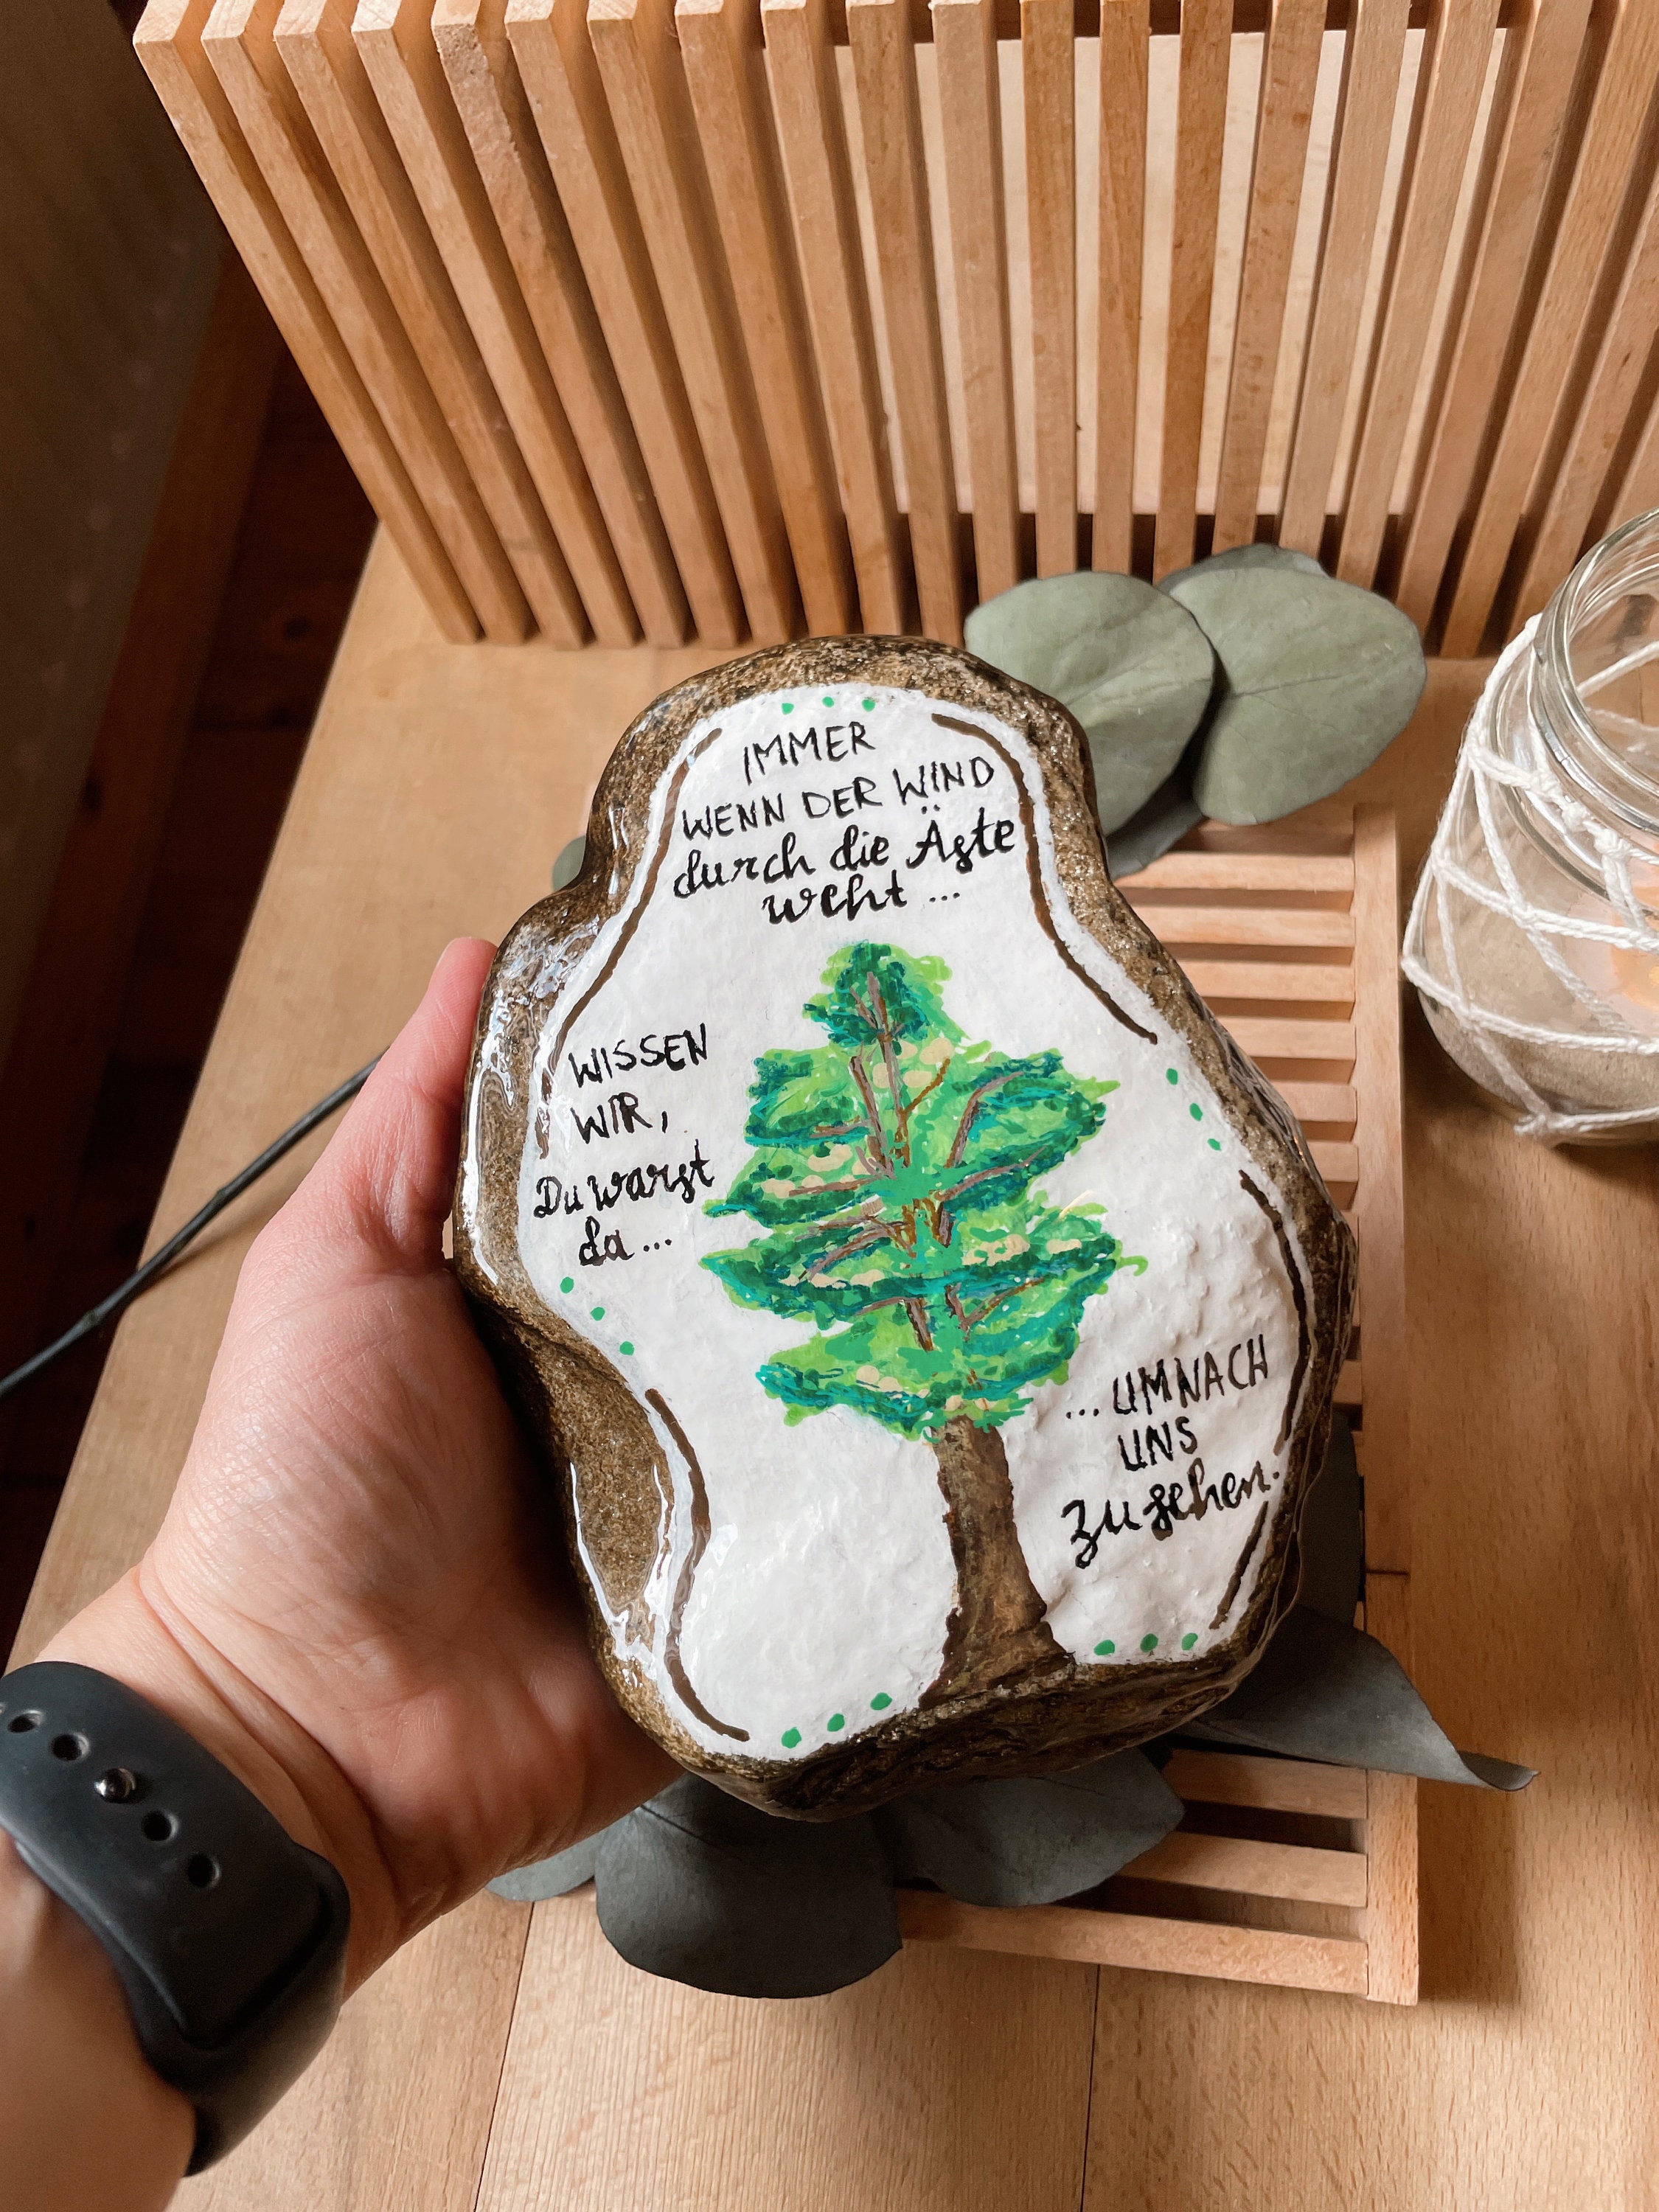 IMMER
WENN DER WIND
durch die Äste
weht ...
WISSEN
WIR,
Du warst
da ...
... UM NACH
UNS
zu sehen.